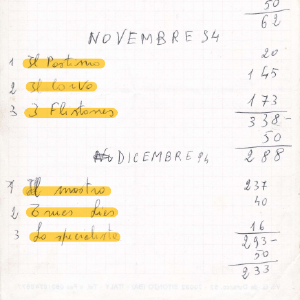 50
62
NOVEMBRE 94
1 Il Postino 20
2 Il corvo 145
3 3 Flistones 173
338-
50
288
DICEMBRE 94
1 Il mostro 237
2 Trues Lies 40
3 Lo specialista 16
293-
50
233